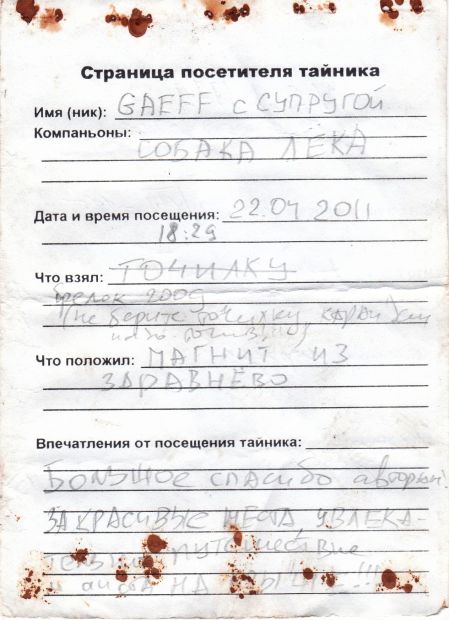 Страница посетителя тайника
Имя (ник): GAEFF с СУПРУГОЙ
Компаньоны:
СОБАКА ЛЕКА
Дата и время посещения: 22.04 2011
18:29
Что взял: ТОЧИЛКУ
брелок
(не берите точилку
Что положил: МАГНИТ ИЗ
ЗДРАВНЁВО
Впечатления от посещения тайника:
БОЛЬШОЕ СПАСИБО авторам
ЗА КРАСИВЫЕ МЕСТА, УВЛЕКА-
путешествие
НА